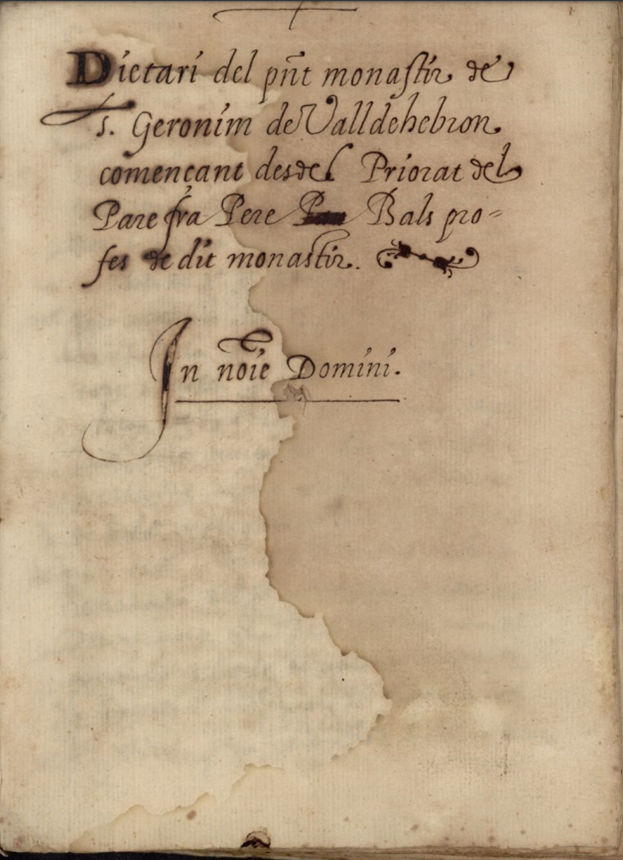 Dietari del pñt monastir de
s. Geronim de Valldehebron
començant desdel Priorat del
Pare fra Pere Bals pro=
fes de dit monastir.
In noīe Domini.